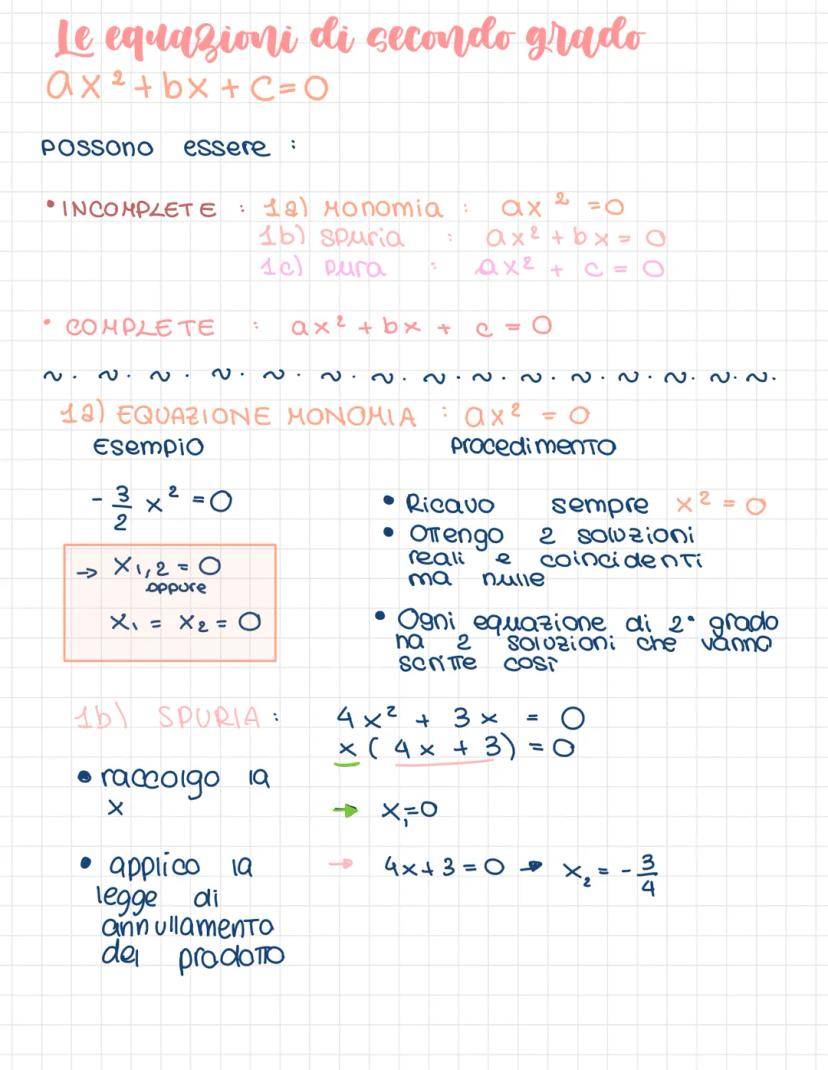 Le equazioni di secondo grado
ax² + bx + c = 0
possono essere :
• INCOMPLETE : 1a) Monomia : ax² = 0
1b) spuria : ax² + bx = 0
1c) pura : ax² + c = 0
• COMPLETE : ax² + bx + c = 0
1a) EQUAZIONE MONOMIA : ax² = 0
Esempio
Procedimento
- 3/2 x² = 0
→ x₁,₂ = 0
oppure
x₁ = x₂ = 0
• Ricavo sempre x² = 0
• Ottengo 2 soluzioni
reali e coincidenti
ma nulle
• Ogni equazione di 2° grado
ha 2 soluzioni che vanno
scritte così
1b) SPURIA :
4x² + 3x = 0
x ( 4x + 3 ) = 0
• raccolgo la
x
→ x₁ = 0
• applico la
legge di
annullamento
del prodotto
→ 4x + 3 = 0 → x₂ = - 3/4